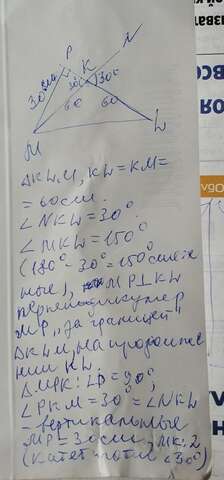 P
K
N
30см
30°
150°
60
60
M
L
ΔKLM, KL = KM =
= 60см.
∠NKL = 30°
∠MKL = 150°
(180° - 30° = 150° смеж
ные), MP⊥KL
перпендикуляр
MP "за границей"
ΔKLM, на продолже
нии KL.
ΔMPK: ∠P = 90°,
∠PKM = 30° = ∠NKL
- вертикальные
MP = 30см, MK:2
(катет против <30°)